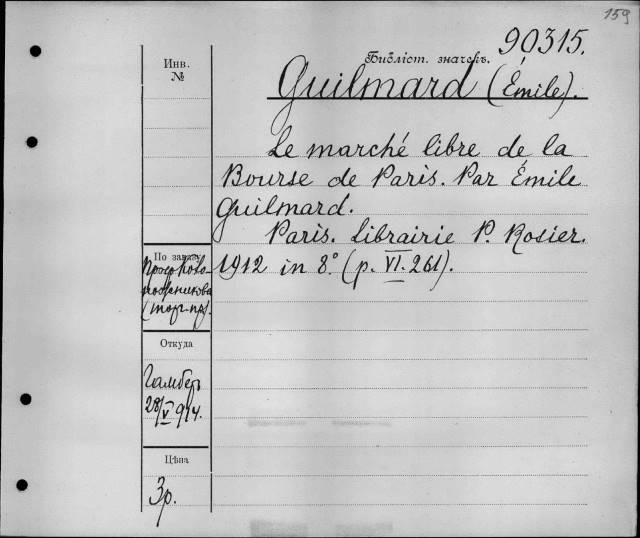 159
90315.
Инв.
№
Библіот. значекъ.
Guilmard (Émile).
Le marché libre de la
Bourse de Paris. Par Émile
Guilmard.
Paris. Librairie P. Rosier.
1912 in 8.° (p. VI. 261).
По заказу
(торг-пр).
Откуда
28/V 914.
Цѣна
3р.